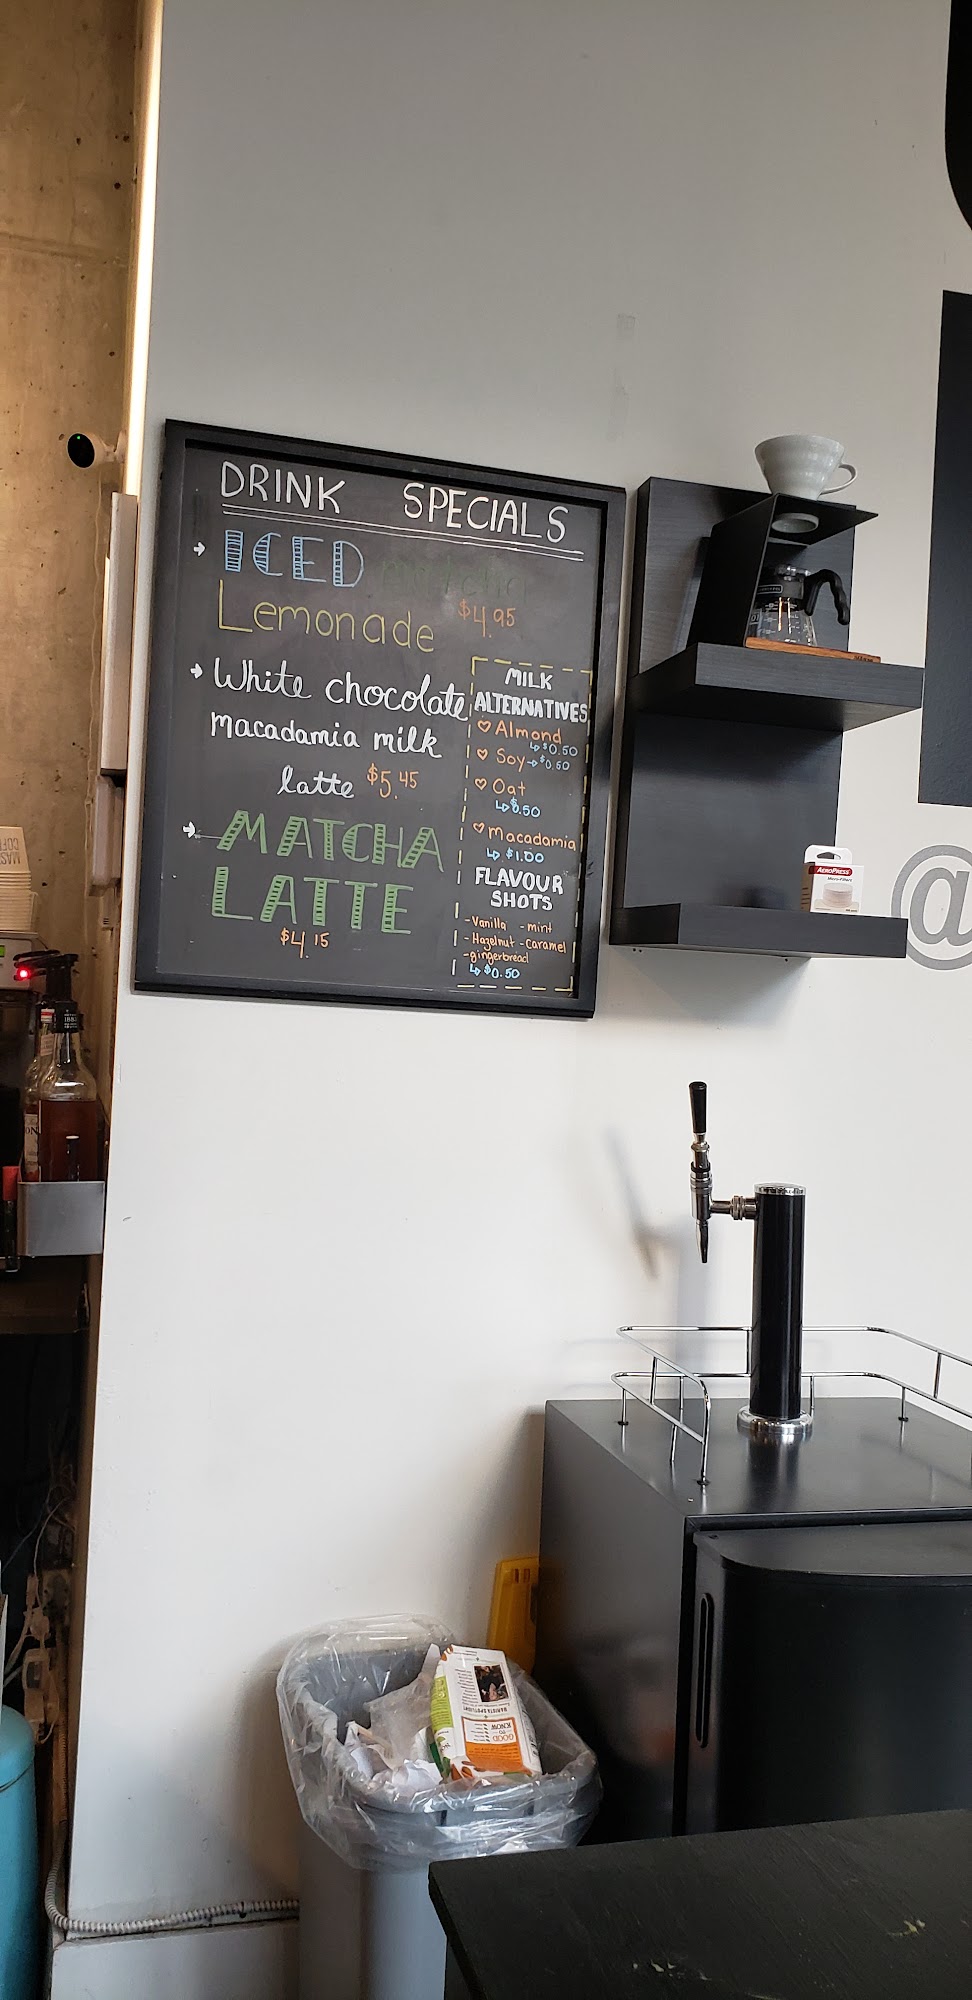 DRINK SPECIALS
→ ICED matcha
Lemonade $4.95
→ White chocolate
macadamia milk
latte $5.45
→ MATCHA
LATTE
$4.15
MILK
ALTERNATIVES
♡ Almond
↳ $0.50
♡ Soy → $0.50
♡ Oat
↳ $0.50
♡ Macadamia
↳ $1.00
FLAVOUR
SHOTS
- Vanilla - mint
- Hazelnut - caramel
- gingerbread
↳ $0.50
AEROPRESS
Micro-Filters
@
BARISTA SPOTLIGHT
GOOD
TO
KNOW